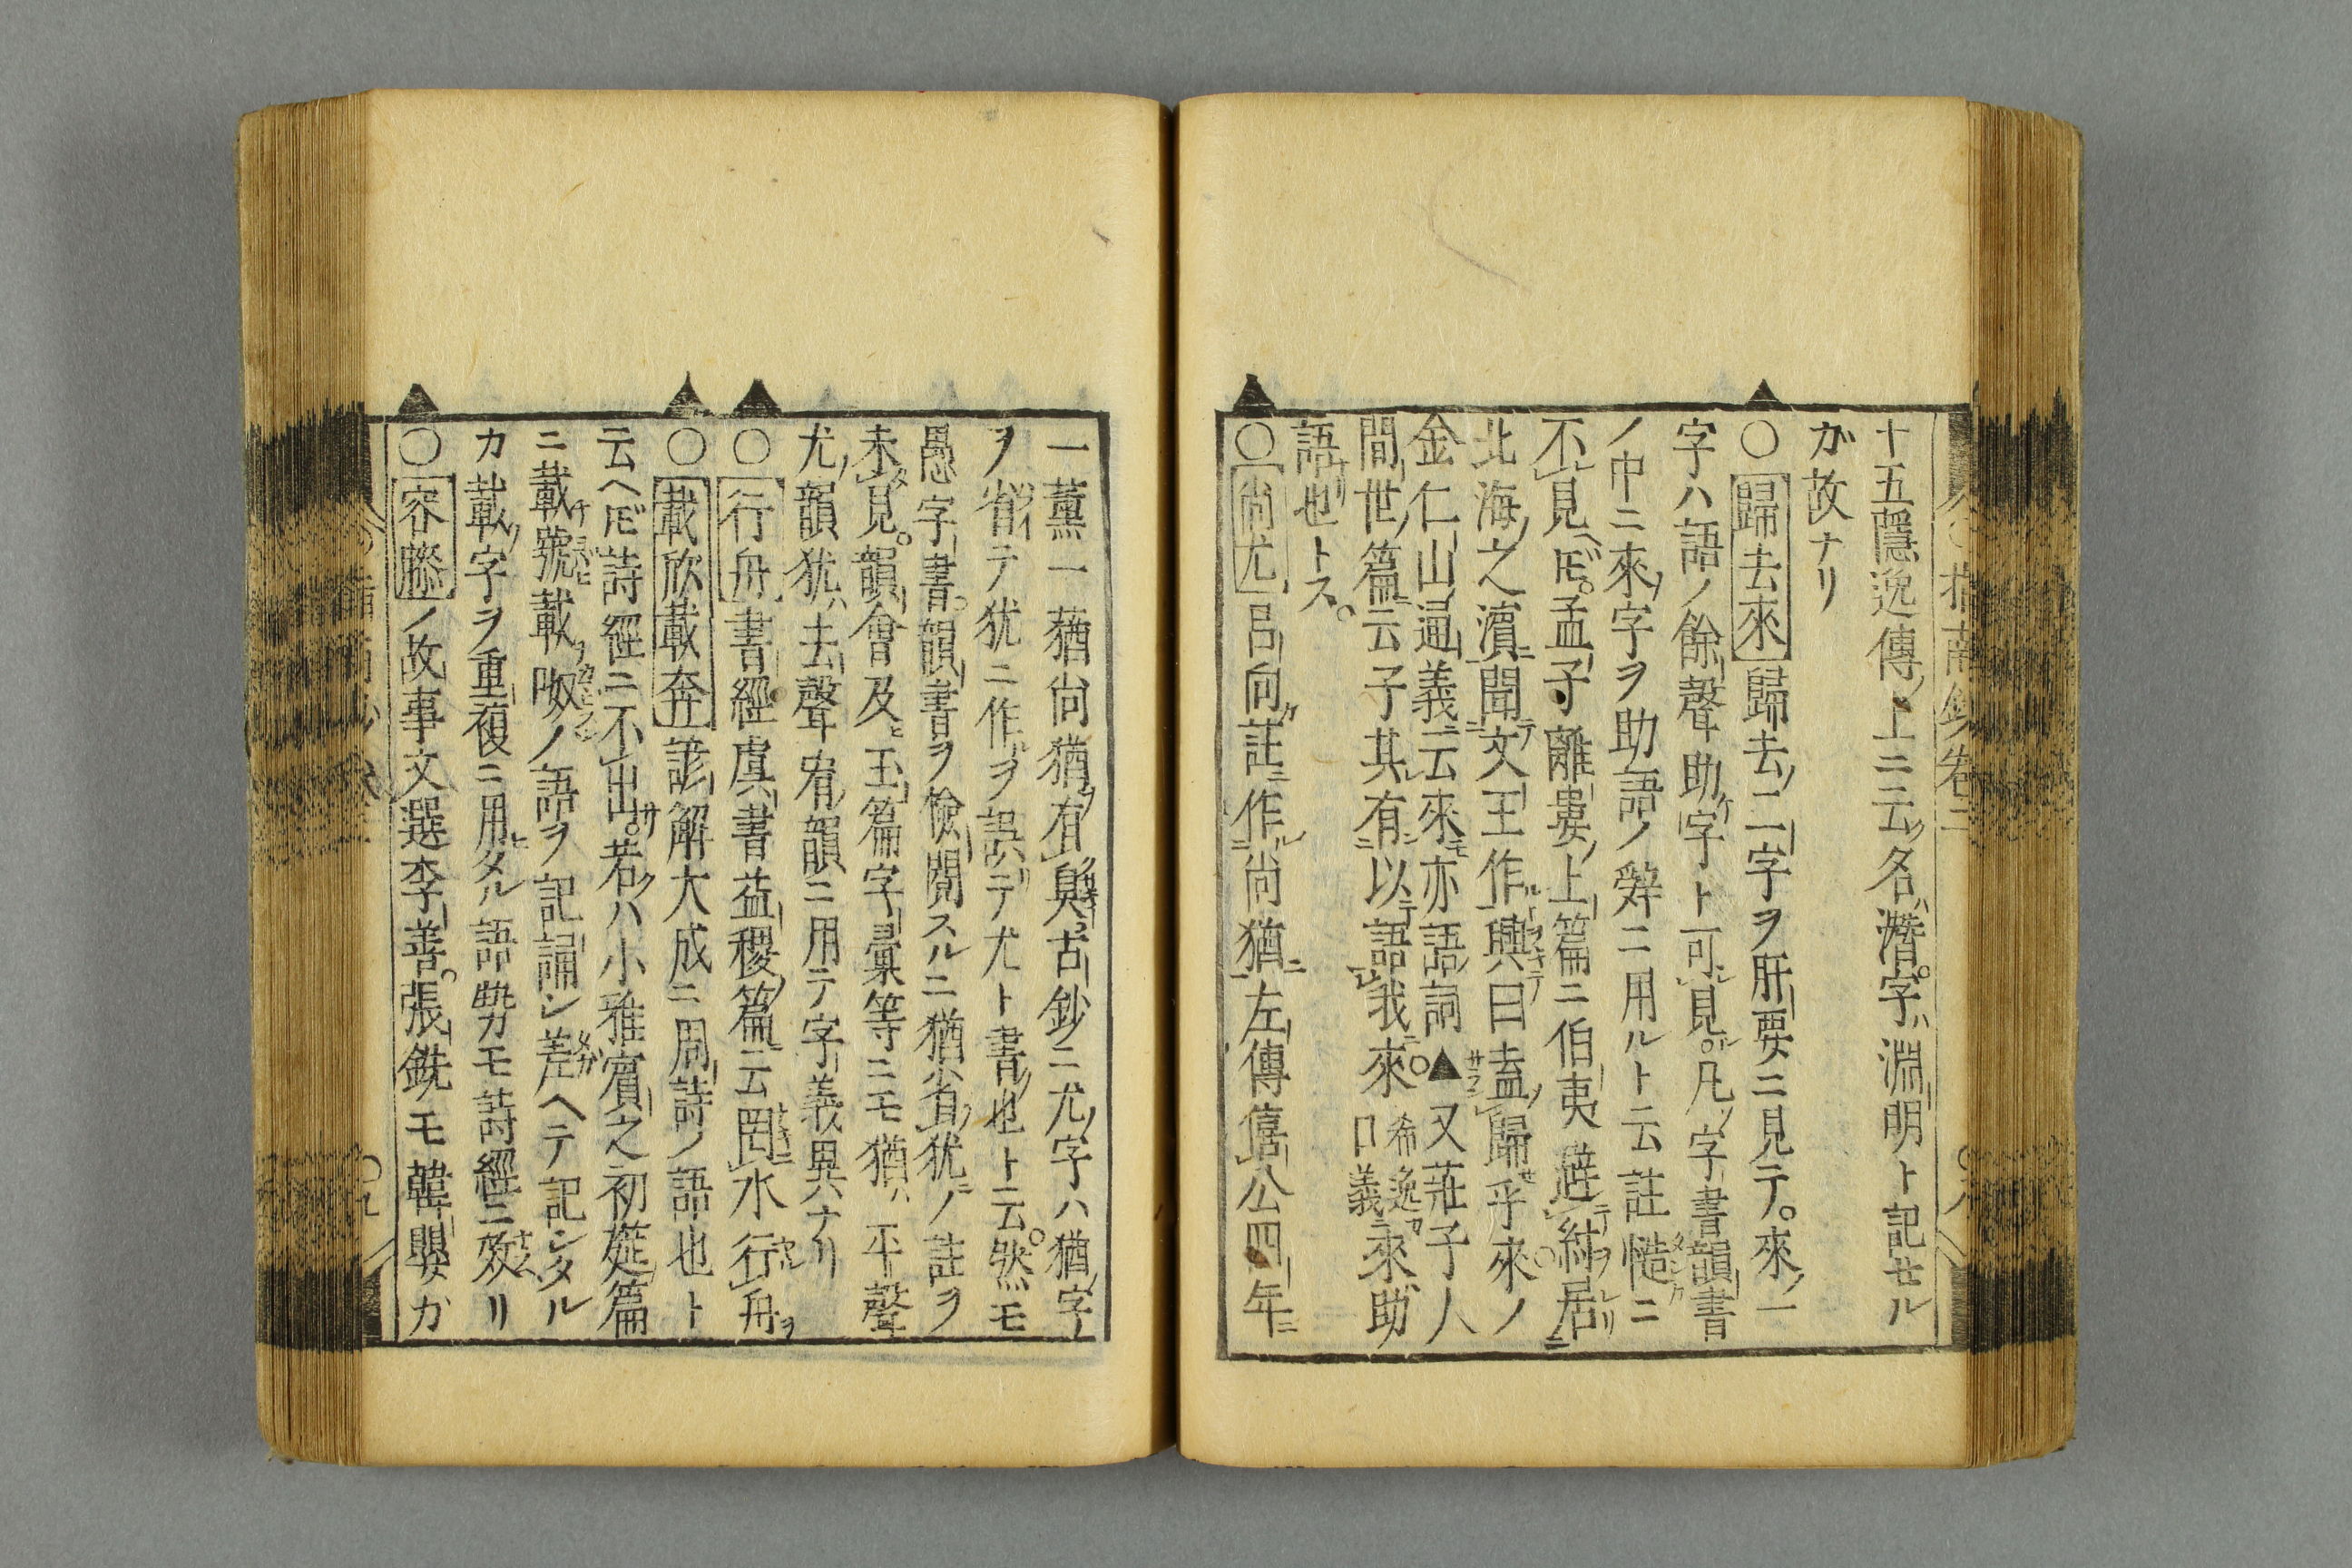 十五隱逸傳ノ上ニ云ク名ハ潛字ハ淵明ト記セル
ガ故ナリ
○歸去來歸去ノ二字ヲ肝要ニ見テ。來ノ一
字ハ語ノ餘聲助ケ字ト可シ見ル。凡ソ字書韻書
ノ中ニ來ノ字ヲ助語ノ辤ニ用ルト云註慥ニ
不レ見ヘ𪜈。孟子離婁ノ上篇ニ伯夷避テ紂ヲ居レリ
北海ノ之濱ニ聞テ文王作ルト興キテ曰盍ゾ歸セ乎來ノ
金仁山通義ニ云來モ亦語詞▲又莊子人
間世ノ篇ニ云子其レ有ニ以テ語レ我ニ來○希逸カ口義ニ來ハ助
語ナリ也トス。
○尚尤呂向カ註ニ作レ尚猶ニ左傳僖公四年ニ
一薰一蕕尚猶ヲ有レ臭古鈔ニ尤ノ字ハ猶ノ字ノ
ヲ省テ犹ニ作ルヲ誤リテ尤ト書ク也ト云。然モ
愚字書。韻書ヲ檢閲スルニ猶省ノ犹ニノ註ヲ
未タ見。韻會及ヒ玉篇字彙等ニモ猶ハ平聲
尤ノ韻犹ハ去聲宥ノ韻ニ用テ字義異ナリ
○行舟書經虞書益稷ノ篇ニ云罔キニ水行ル舟ヲ
○載欣載奔諺解大成ニ周詩ノ語也ト
云ヘ𪜈詩經ニ不出サ。若クハ小雅賓之初筵ノ篇
ニ載號載呶ノ語ヲ記誦シ差ヘテ記シタル
カ載ノ字ヲ重複ニ用ヒタル語勢モ詩經ニ效ヘリ
○容膝ノ故事文選李善。張銑モ韓嬰ガ